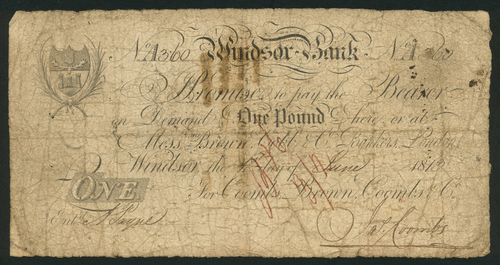 No. A360 Windsor Bank No. A360
I Promise to pay the Bearer
on Demand One Pound here or at
Mess. Brown Cobb & Co. Bankers, London.
Windsor, the day of June 1813
For Coombs, Brown, Coombs & Co.
ONE
Entd. Payne
Coombs